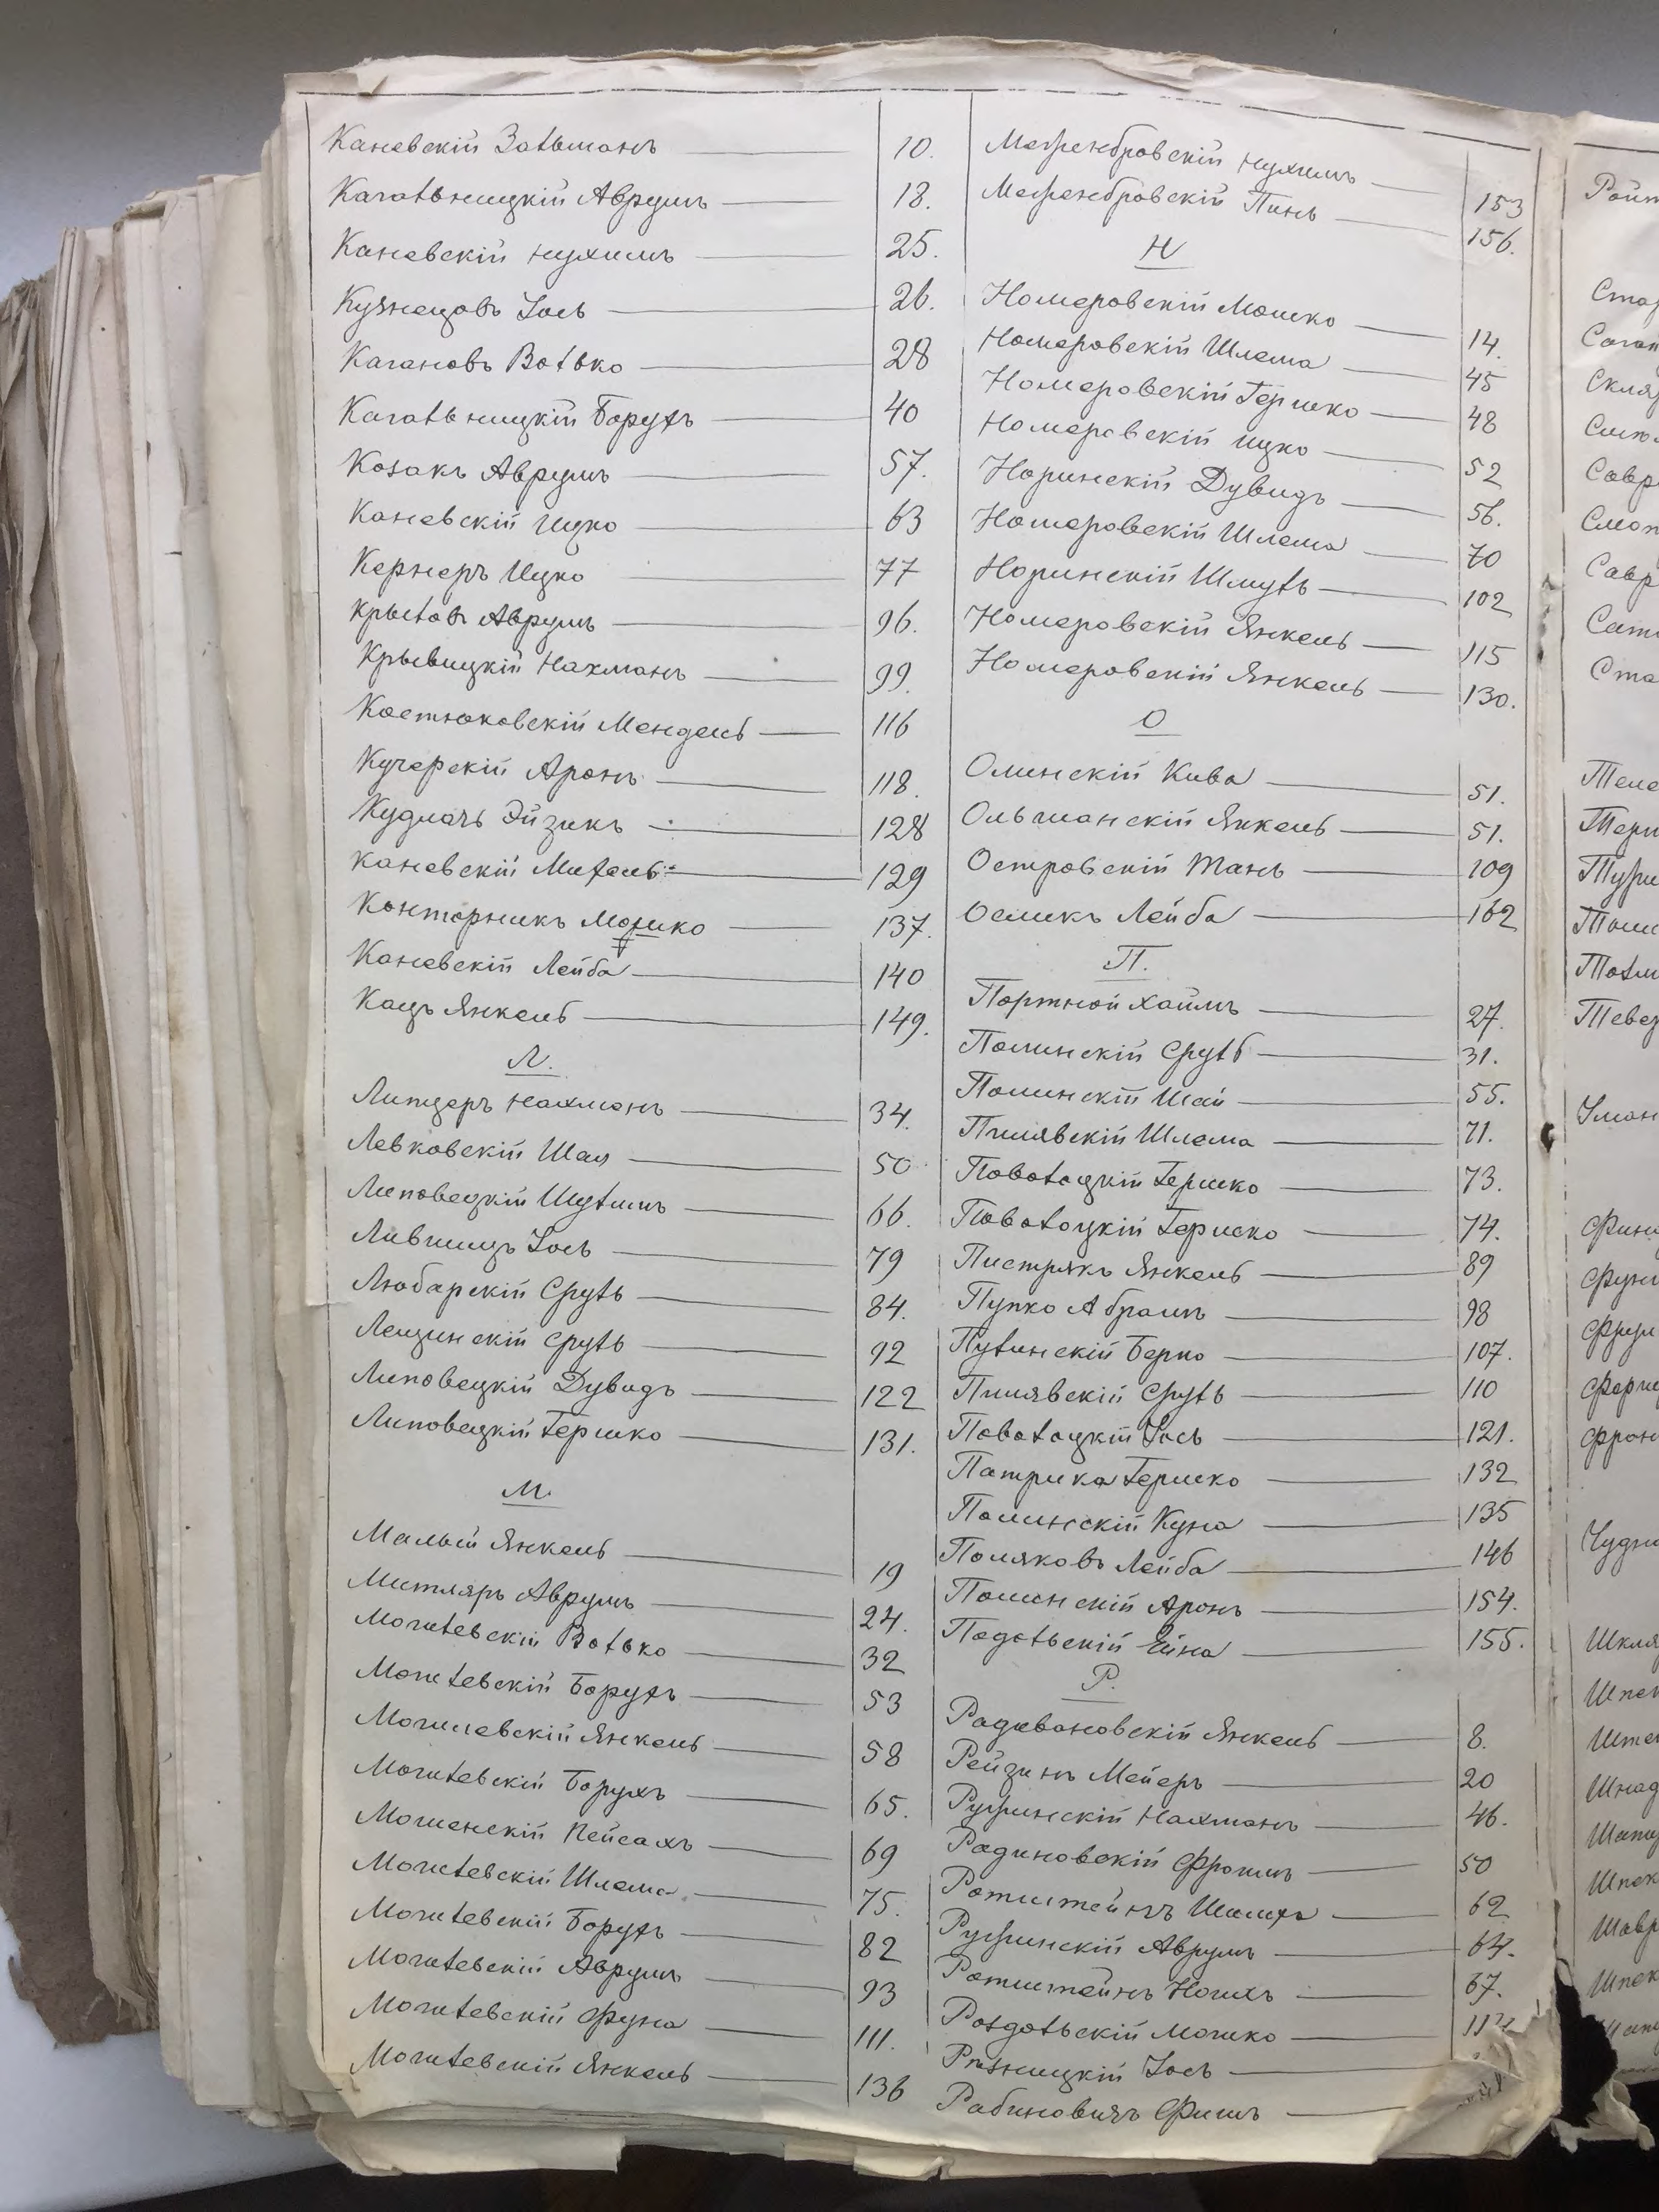 Каневскій Зальманъ 10.
Кагальницкій Аврумъ 18.
Каневскій Нухимъ 25.
Кузнецовъ Іось 26.
Кагановъ Волько 28
Кагальницкій Борухъ 40
Козакъ Аврумъ 57.
Каневскій Ицко 63
Кернеръ Ицко 77
Крыловъ Аврумъ 96.
Крывицкій Нахманъ 99.
Костюковскій Мендель 116
Кучерскій Аронъ 118.
Кудлачъ Эйзикъ 128
Каневскій Михель 129
Конторникъ Мошко 137.
Каневскій Лейба 140
Кацъ Янкель 149.
Л.
Липцеръ Нахманъ 34.
Левковскій Шая 50
Липовецкій Шулимъ 66.
Лившицъ Іось 79
Любарскій Сруль 84.
Лещинскій Сруль 92
Липовецкій Дувидъ 122
Липовецкій Гершко 131.
М.
Малый Янкель 19
Митляръ Аврумъ 24.
Могилевскій Волько 32
Могилевскій Борухъ 53
Могилевскій Янкель 58
Могилевскій Борухъ 65.
Мошенскій Пейсахъ 69
Могилевскій Шлема 75.
Могилевскій Борухъ 82
Могилевскій Аврумъ 93
Могилевскій Фуна 111.
Могилевскій Янкель 136
Межембровскій Нухимъ 153
Межембровскій Пинь 156.
Н
Номеровскій Мошко 14.
Номеровскій Шлема 45
Номеровскій Гершко 48
Номеровскій Ицко 52
Норинскій Дувидъ 56.
Номеровскій Шлема 70
Норинскій Шмуль 102
Номеровскій Янкель 115
Номеровскій Янкель 130.
О
Олинскій Кива 51.
Ольшанскій Янкель 51.
Островскій Танъ 109
Осликъ Лейба 162
П.
Портной Хаимъ 27.
Полинскій Сруль 31.
Полинскій Шая 55.
Пилявскій Шлема 71.
Поволоцкій Гершко 73.
Поволоцкій Гершко 74.
Пистрякъ Янкель 89
Пупко Абрамъ 98
Пулинскій Берко 107.
Пилявскій Сруль 110
Поволоцкій Іось 121.
Патрика Гершко 132
Полинскій Куна 135
Поляковъ Лейба 146
Полинскій Аронъ 154.
Подольскій Ейна 155.
Р.
Радивановскій Янкель 8.
Рейзинъ Мейеръ 20
Ружинскій Нахманъ 46.
Радиновскій Фроимъ 50
Ротштейнъ Шмиха 62
Ружинскій Аврумъ 64.
Ротштейнъ Ноихъ 67.
Роздольскій Мошко
Резницкій Іось
Рабиновичъ Фишъ